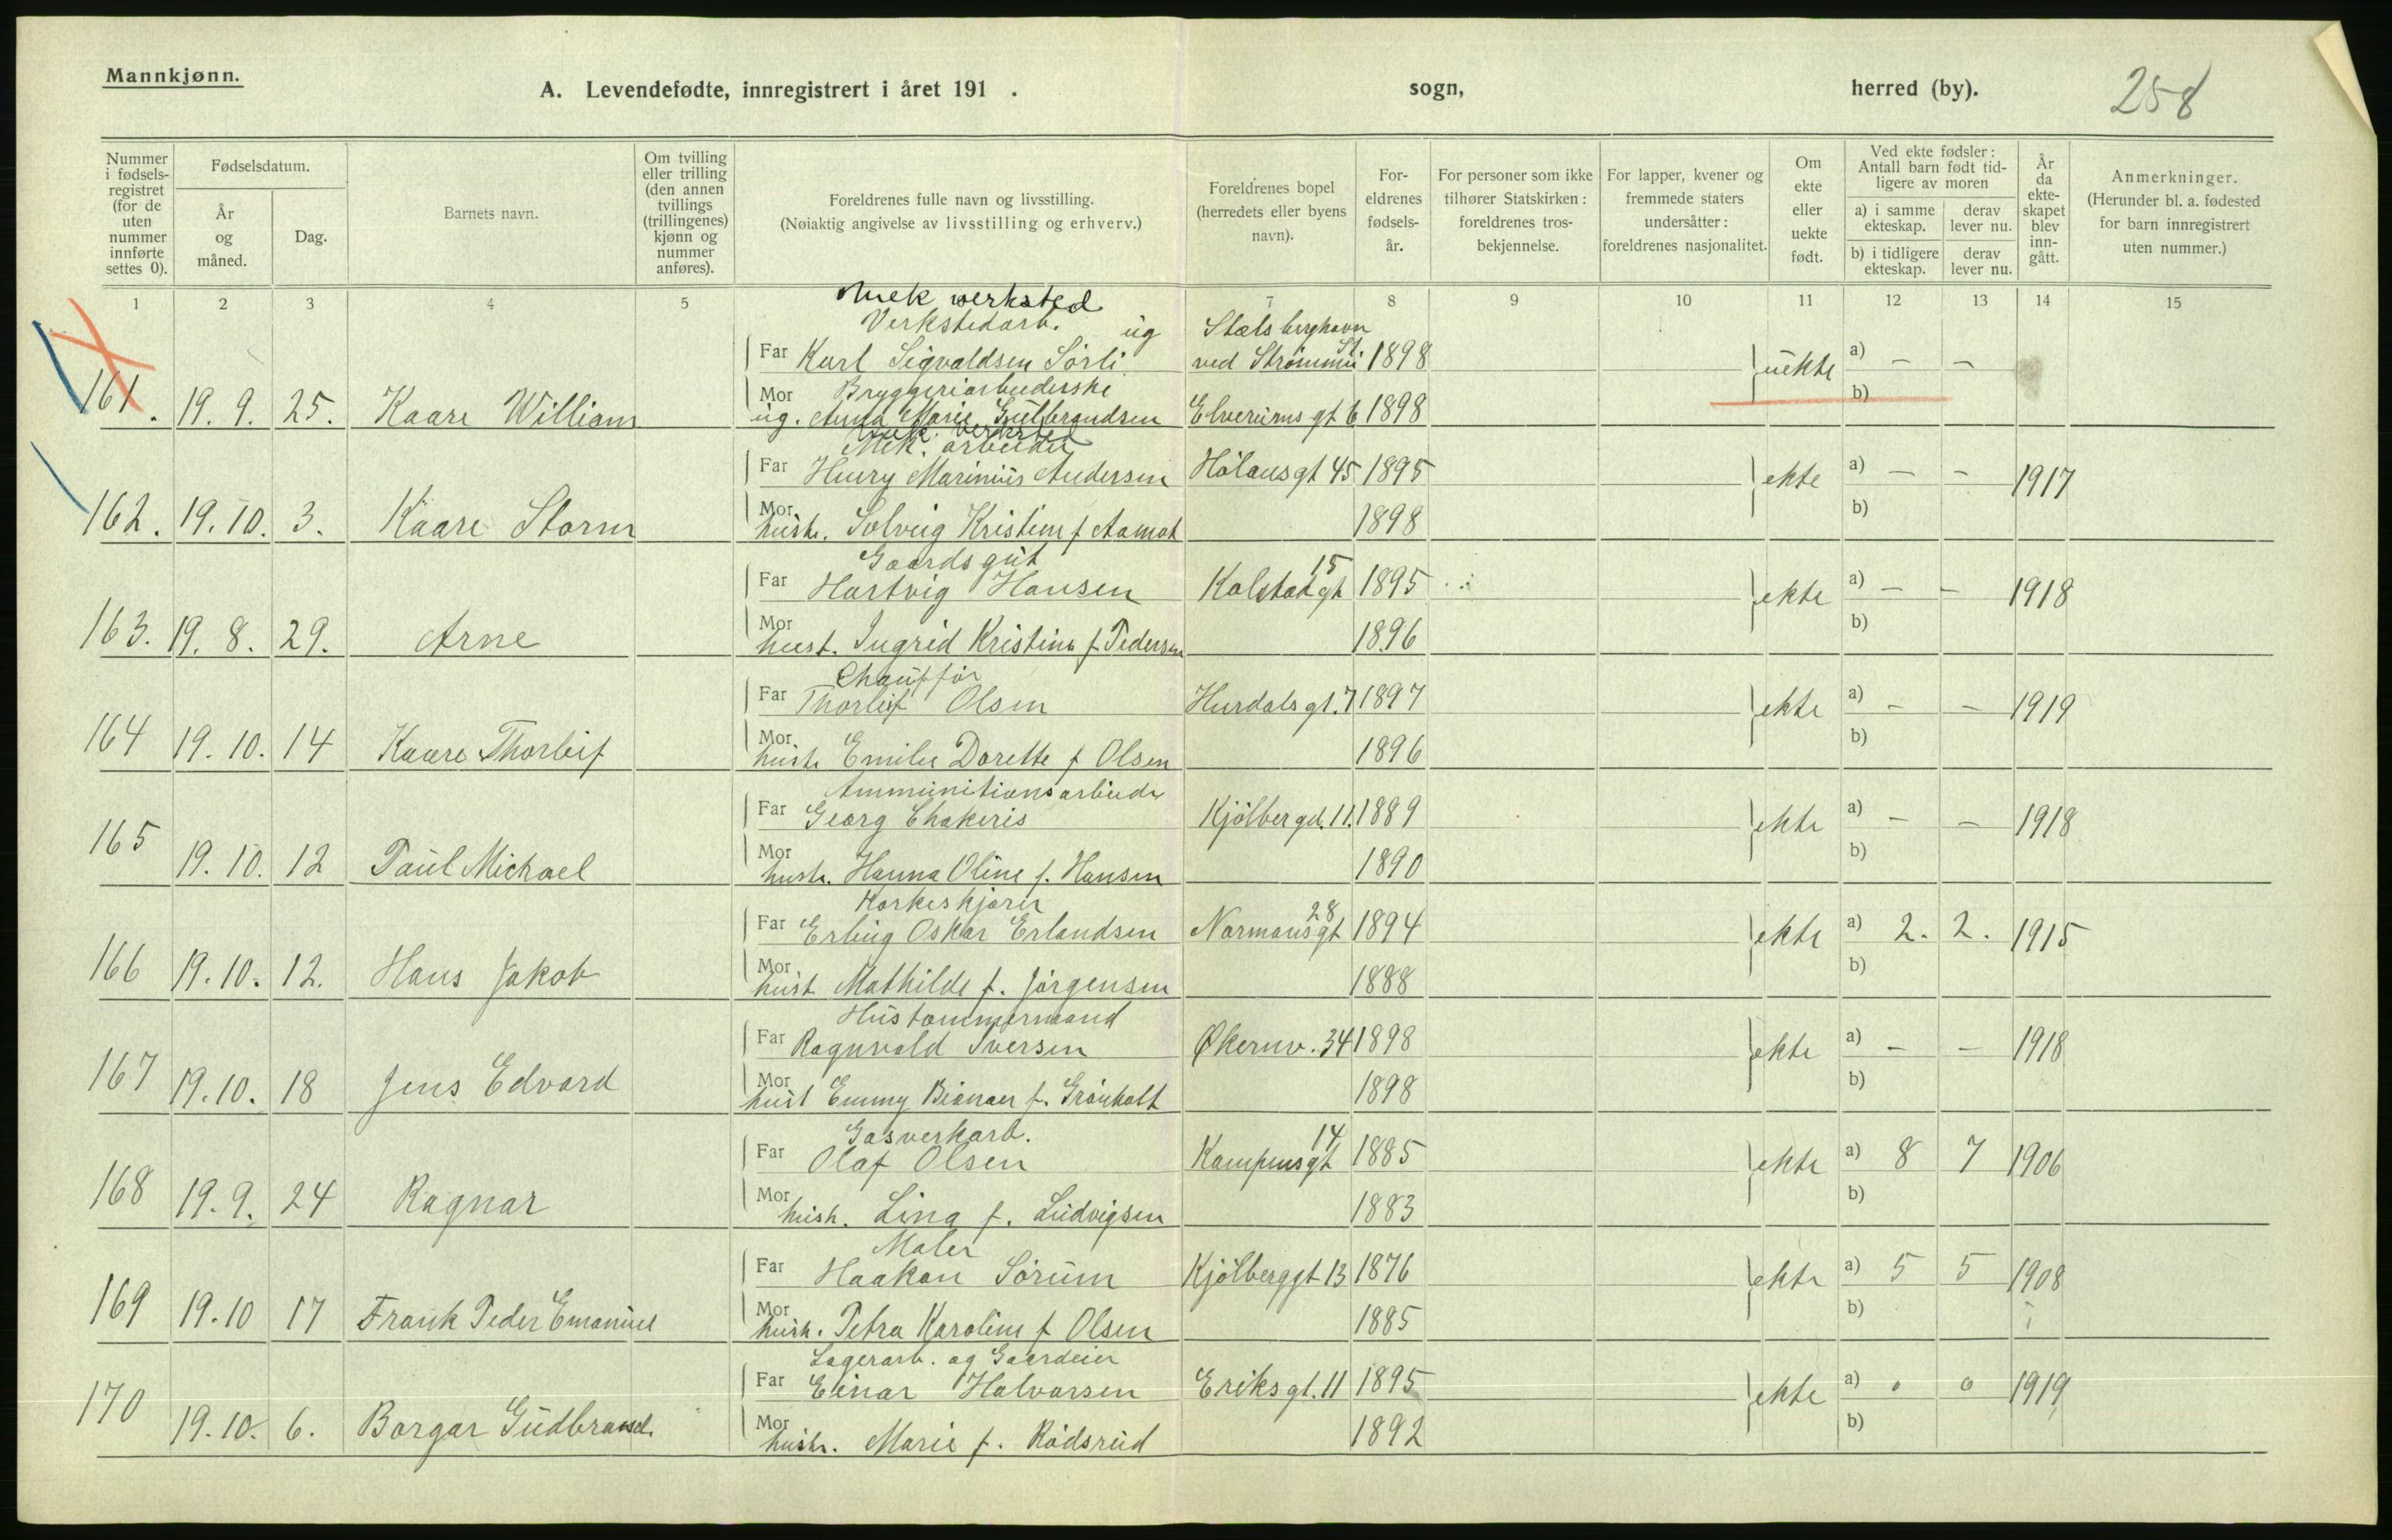 Mannkjønn.
A. Levendefødte, innregistrert i året 191 .
sogn,
herred (by).
258
Nummer i fødsels-registret (for de uten nummer innførte settes 0).
Fødselsdatum.
År og måned.
Dag.
Barnets navn.
Om tvilling eller trilling (den annen tvillings (trillingenes) kjønn og nummer anføres).
Foreldrenes fulle navn og livsstilling.
(Nøiaktig angivelse av livsstilling og erhverv.)
Foreldrenes bopel (herredets eller byens navn).
For-eldrenes fødsels-år.
For personer som ikke tilhører Statskirken: foreldrenes tros-bekjennelse.
For lapper, kvener og fremmede staters undersåtter: foreldrenes nasjonalitet.
Om ekte eller uekte født.
Ved ekte fødsler: Antall barn født tid-ligere av moren
a) i samme ekteskap.
derav lever nu.
b) i tidligere ekteskap.
derav lever nu.
År da ekte-skapet blev inn-gått.
Anmerkninger.
(Herunder bl. a. fødested for barn innregistrert uten nummer.)
1 2 3 4 5 7 8 9 10 11 12 13 14 15
Mek verksted
Verkstedarb. ug Stalsberghavn
Far Karl Sigvaldsen Sörli ved Strömmen St 1898 uekte a) - -
Mor Bryggeriarbeiderske
161. 19. 9. 25. Kaare William ug. Anna Marie Gulbrandsen Elverums gt 6 1898 b)
Mek. verksted
Mek. arbeider
Far Henry Marinius Andersen Hölandsgt 45 1895 ekte a) - - 1917
162. 19. 10. 3. Kaare Storm Mor hustr. Solveig Kristine f Aamot 1898 b)
Gaardsgut
Far Hartvig Hansen Kalstadgt 15 1895 ekte a) - - 1918
163. 19. 8. 29. Arne Mor hust. Ingrid Kristine f Pedersen 1896 b)
Chaufför
Far Thorleif Olsen Hurdalsgt. 7 1897 ekte a) - - 1919
164 19. 10. 14 Kaare Thorleif Mor hustr Emilie Dorette f Olsen 1896 b)
Ammunitionsarbeider
Far Georg Chakeris Kjölberggd. 11. 1889 ekte a) - - 1918
165 19. 10. 12 Paul Michael Mor hustr. Hanna Oline f. Hansen 1890 b)
Korkeskjærer
Far Erling Oskar Erlandsen Normansgt 28 1894 ekte a) 2. 2. 1915
166 19. 10. 12. Hans Jakob Mor hust Mathilde f. Jörgensen 1888 b)
Hustömmermand
Far Ragnvald Iversen Økernv. 34 1898 ekte a) - - 1918
167 19. 10. 18 Jens Edvard Mor hust Emmy f. Grönholt 1898 b)
Gasverkarb.
Far Olaf Olsen Kampensgt 14 1885 ekte a) 8 7 1906
168 19. 9. 24 Ragnar Mor hustr. Lina f. Ludvigsen 1883 b)
Maler
Far Haakon Sörum Kjölberggt 13 1876 ekte a) 5 5 1908
169 19. 10 17 Frank Peder Emanuel Mor hustr. Petra Karoline f Olsen 1885 b)
Lagerarb. og Gaardeier
Far Einar Halvorsen Eriksgt. 11 1895 ekte a) 0 0 1919
170 19. 10. 6. Borgar Gudbrand. Mor hustr. Marie f. Rödsrud 1892 b)